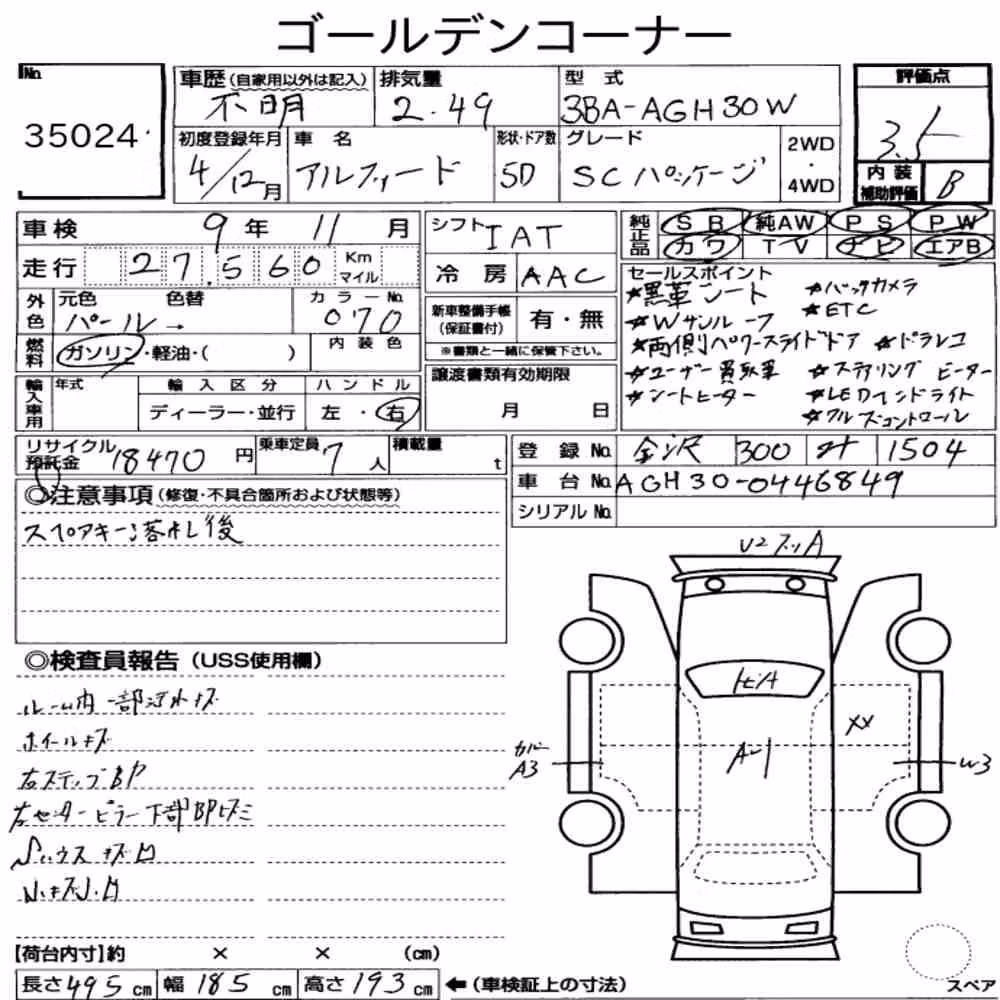 ゴールデンコーナー
No.
35024
車歴(自家用以外は記入)
不明
排気量
2.49
型 式
3BA-AGH30W
評価点
3.5
初度登録年月
4/12月
車 名
アルファード
形状・ドア数
5D
グレード
SC パッケージ
2WD
・
4WD
内 装
補助評価
B
車検 9年 11月
走行 27,560 Km マイル
シフト
IAT
冷 房 AAC
純正品
SB 純AW PS PW
カワ TV ナビ エアB
外色
元色 色替
パール→
カラーNo.
070
燃料
ガソリン・軽油・( )
内 装 色
新車整備手帳
(保証書付)
有・無
※書類と一緒に保管下さい。
セールスポイント
★黒革シート ★バックカメラ
★Wサンルーフ ★ETC
★両側パワースライドドア ★ドラレコ
★ユーザー買取車 ★ステアリングヒーター
★シートヒーター ★LEDヘッドライト
★クルーズコントロール
輸入車用
年式
輸 入 区 分
ディーラー・並行
ハ ン ド ル
左・右
譲渡書類有効期限
月 日
リサイクル
預託金
18470円
乗車定員
7人
積載量
t
登 録 No. 金沢 300 1504
車 台 No. AGH30-0446849
シリアル No.
◎注意事項(修復・不具合箇所および状態等)
スペアキー:落札後
◎検査員報告(USS使用欄)
ルーム内一部汚れキズ
ホイールキズ
右ステップBP
左センターピラー下部BPヒズミ
ハウスキズ凹
キズ凹
U2 スリA
ヒA
A-1
XX
カバー
A3
W3
【荷台内寸】約 × × (cm)
長さ495cm 幅185cm 高さ193cm ←(車検証上の寸法)
スペア